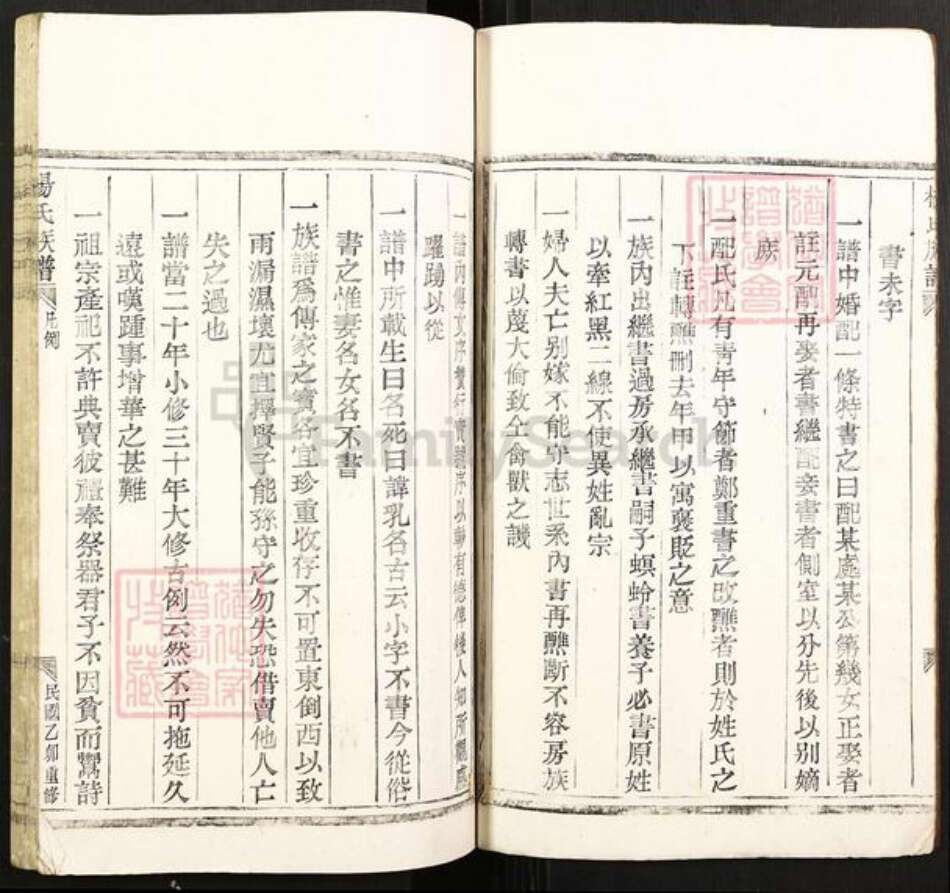 書未字
一譜中婚配一條特書之曰配某處某公第幾女正娶者
註元配再娶者書繼配妾書者側室以分先後以別嫡
族
一配氏凡有青年守節者鄭重書之改醮者則於姓氏之
下註轉醮刪去年甲以寓褒貶之意
一族內出繼書過房承繼書嗣子螟蛉書養子必書原姓
以牽紅黑二線不使異姓亂宗
一婦人夫亡別嫁不能守志世系內書再醮斷不容房族
轉書以蔑大倫致仝禽獸之譏
一譜內傳文序贊行實 序以載有德俾後人知所觀感
躍踴以從
一譜中所載生曰名死曰諱乳名古云小字不書今從俗
書之惟妻名女名不書
一族譜為傳家之寶各宜珍重收存不可置東倒西以致
雨漏濕壞尤宜擇賢子能孫守之勿失恐借賣他人亡
失之過也
一譜當二十年小修三十年大修古例云然不可拖延久
遠或嘆踵事增華之甚難
一祖宗產祀不許典賣彼禮奉祭器君子不因貧而鬻詩
楊氏族譜 凡例 民國乙卯重修
FamilySearch